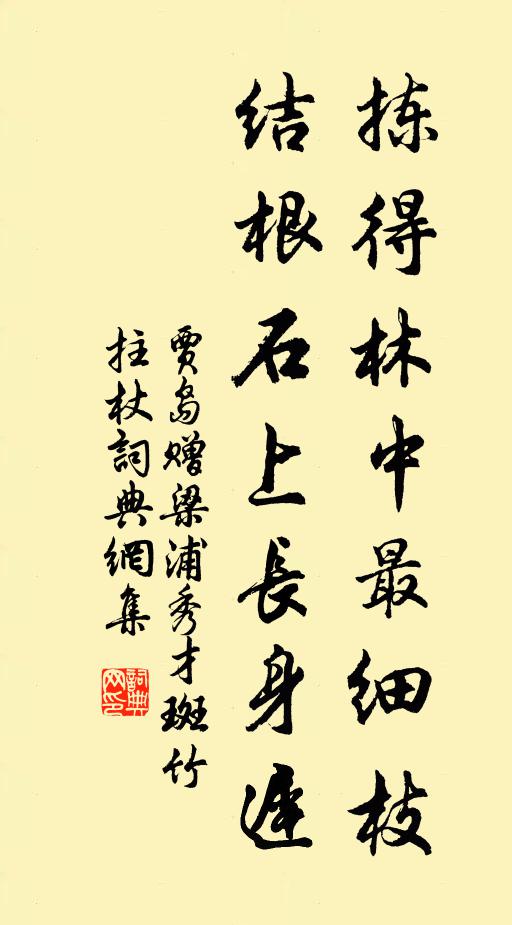 拣得林中最细枝
结根石上長身遲
贾岛赠梁浦秀才斑竹
拄杖詞典網集
詞典网印